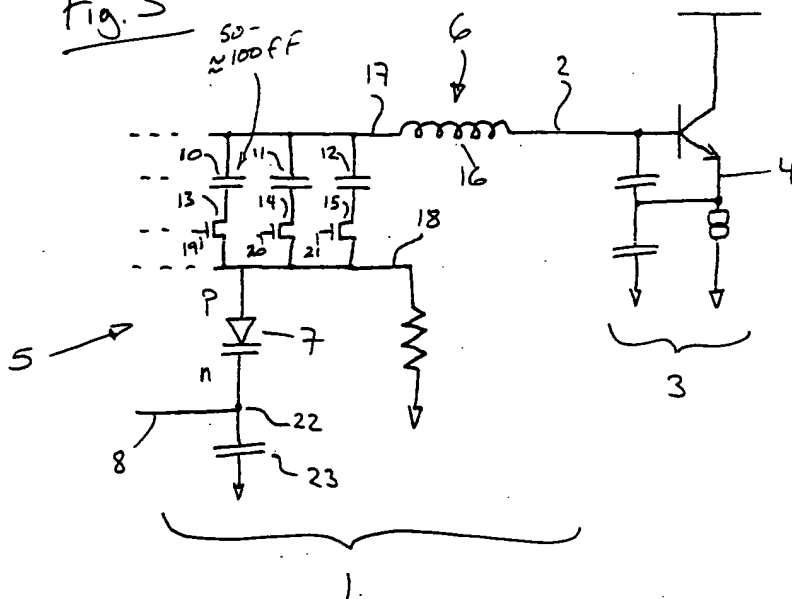 Fig. 3
50-
≈100fF
6
17
2
10
11
12
16
4
13
14
15
19
20
21
18
p
7
5
n
3
8
22
23
1